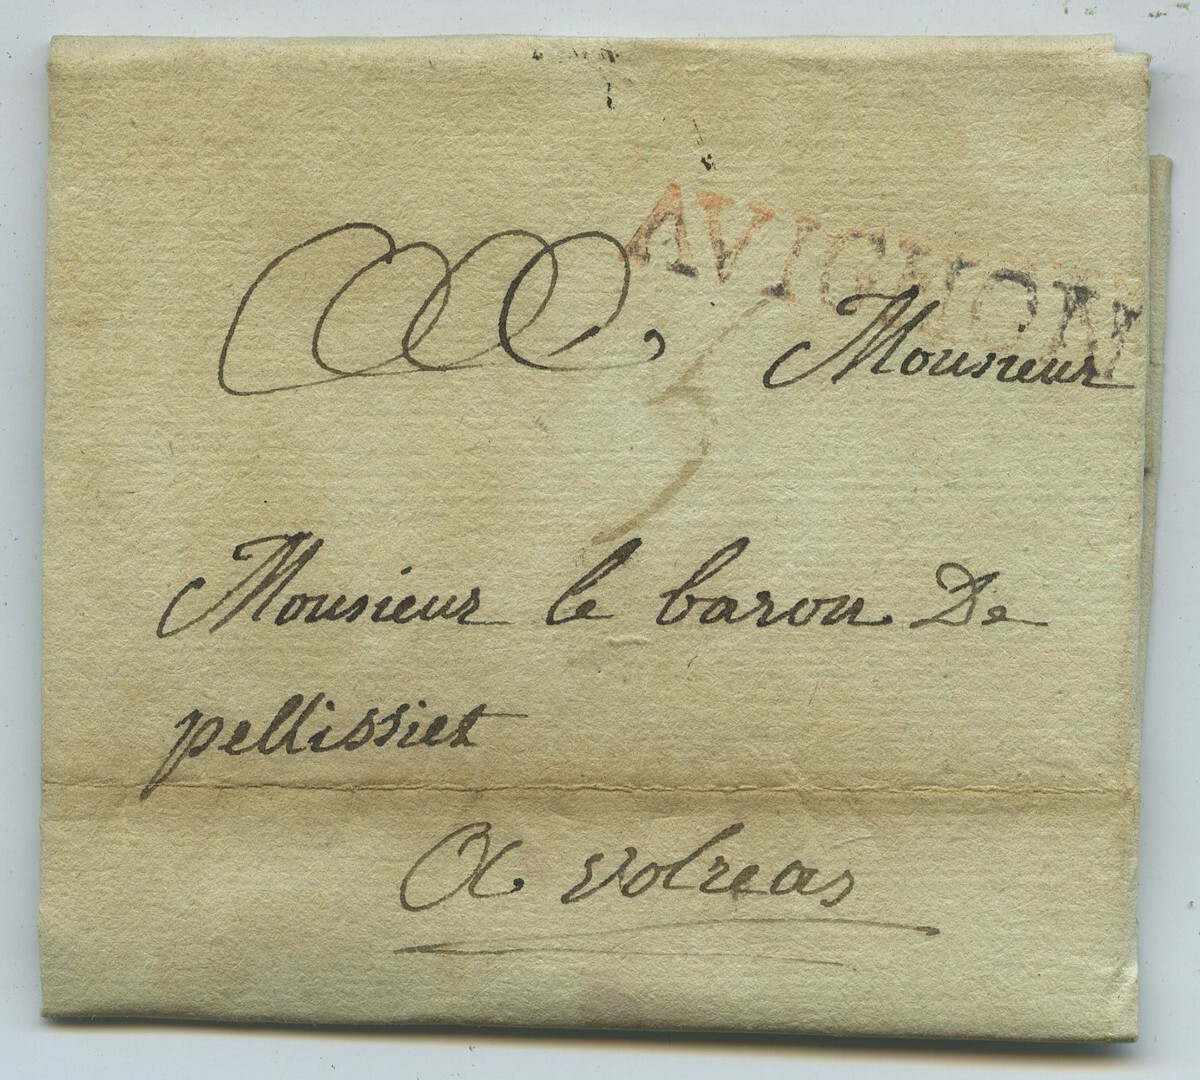 AVIGNON
Monsieur
3
Monsieur le baron De
pellissier
A volreas